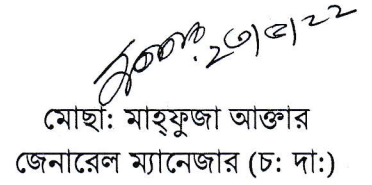 ২৩/৫/২২
মোছা: মাহ্ফুজা আক্তার
জেনারেল ম্যানেজার (চ: দা:)